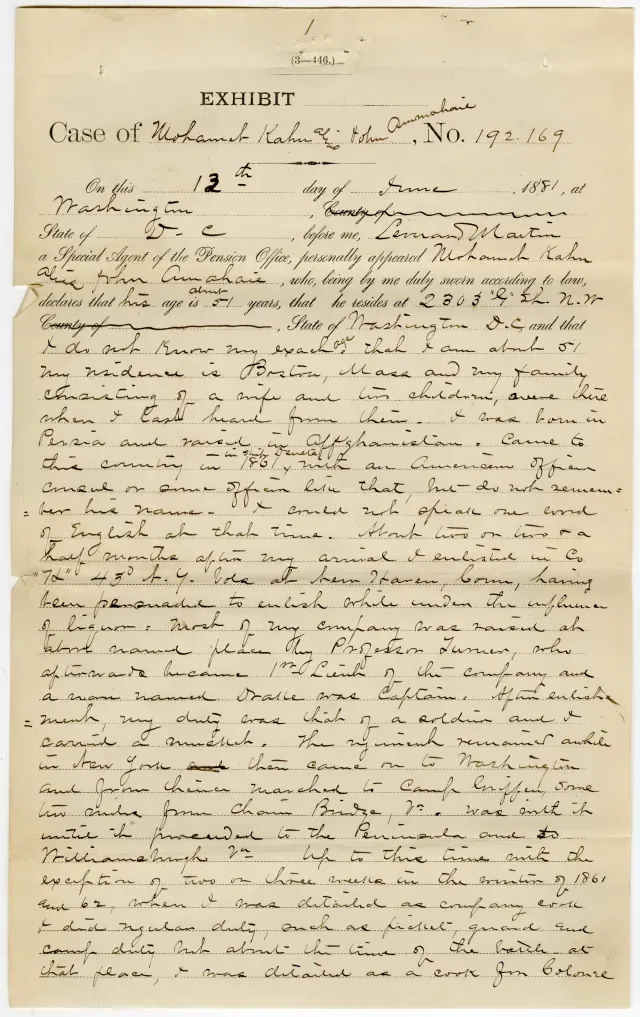 1
(3—446.)
EXHIBIT
Case of Mohamet Kahn als John Ammahaie, No. 192.169
On this 13th day of June, 1881, at
Washington, County of
State of D. C before me, Leonard Martin
a Special Agent of the Pension Office, personally appeared Mohamet Kahn
alias John Amahaie, who, being by me duly sworn according to law,
declares that his age is about 51 years, that he resides at 2303 G St. N.W
County of, State of Washington D.C, and that
I do not know my exact age that I am about 51
my residence is Boston, Mass and my family
consisting of a wife and two children, were there
when I last heard from them. I was born in
Persia and raised in Affghanistan. Came to
this country in 1861, in ship with an American officer
consul or some officer like that, but do not remem=
=ber his name. I could not speak one word
of English at that time. About two or two & a
half months after my arrival I enlisted in Co
"H" 43d N.Y. Vols at New Haven, Conn, having
been persuaded to enlist while under the influence
of liquor. Most of my company was raised at
above named place by Professor Turner, who
afterwards became 1st Lieut of the company and
a man named Drake was Captain. After enlist=
=ment, my duty was that of a soldier and I
carried a musket. The regiment remained awhile
in New York and then came on to Washington
and from thence marched to Camp Griffen, some
two miles from Chain Bridge, Va. was with it
until it proceeded to the Peninsula and to
Williamsburgh Va Up to this time with the
exception of two or three weeks in the winter of 1861
and 62, when I was detailed as company cook
I did regular duty, such as picket, guard and
camp duty but about the time of the battle at
that place, I was detailed as a cook for Colonel